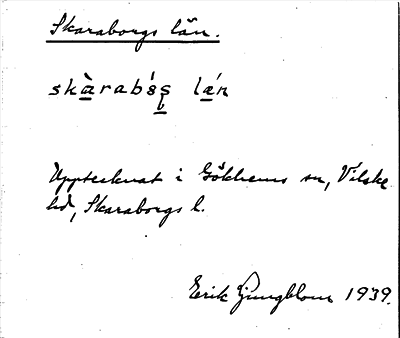 Skaraborgs län.
skàrabɞ́s lǽn
Upptecknat i Gökhems sn, Vilske
hd, Skaraborgs l.
Erik Ljungblom 1939.